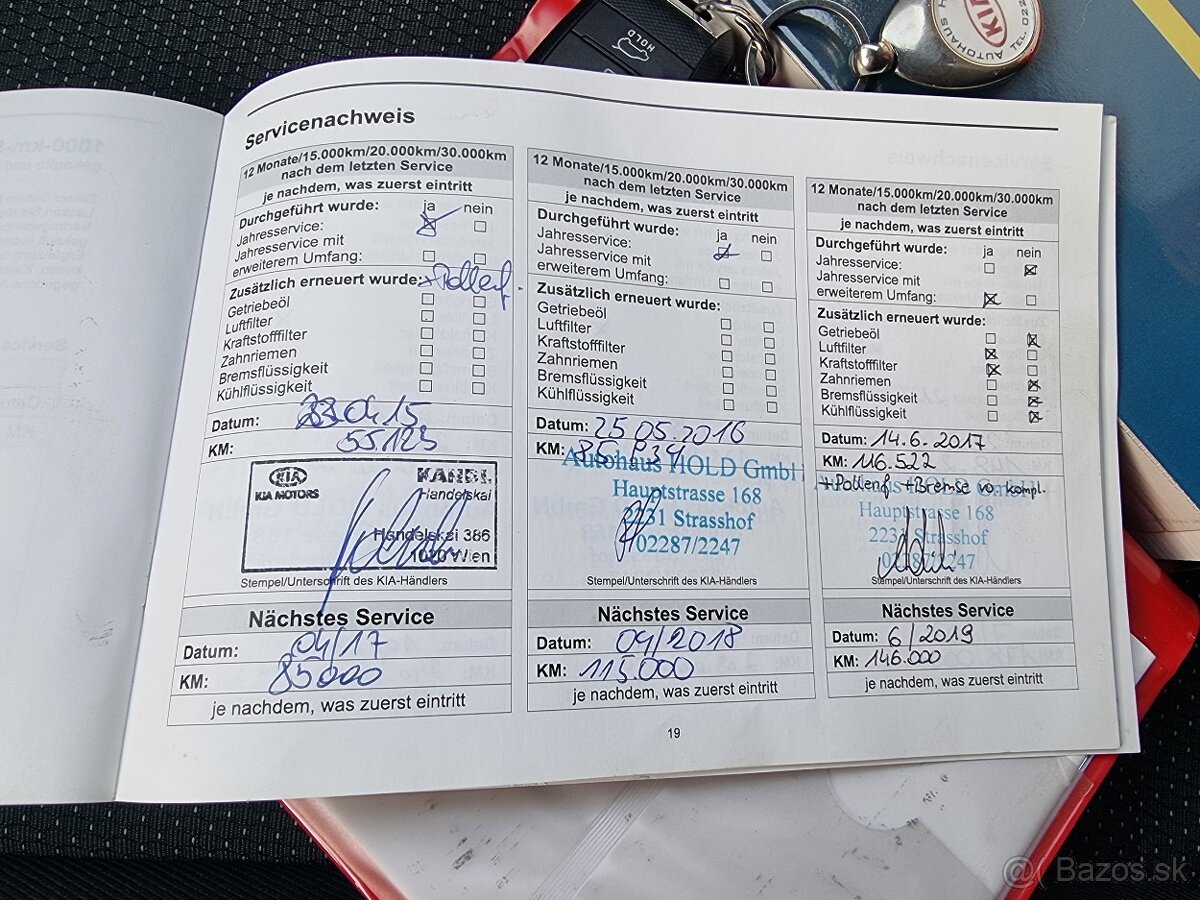 HOLD
KIA
AUTOHAUS H
TEL. 022
Servicenachweis
12 Monate/15.000km/20.000km/30.000km
nach dem letzten Service
je nachdem, was zuerst eintritt
Durchgeführt wurde: ja nein
Jahresservice:
Jahresservice mit
erweiterem Umfang:
Zusätzlich erneuert wurde: + Pollenf.
Getriebeöl
Luftfilter
Kraftstofffilter
Zahnriemen
Bremsflüssigkeit
Kühlflüssigkeit
Datum: 04 15
KM: 55123
KIA
KIA MOTORS
KANDL
Handelskai
Handelskai 386
1020 Wien
Stempel/Unterschrift des KIA-Händlers
Nächstes Service
Datum: 04/17
KM: 85000
je nachdem, was zuerst eintritt
12 Monate/15.000km/20.000km/30.000km
nach dem letzten Service
je nachdem, was zuerst eintritt
Durchgeführt wurde: ja nein
Jahresservice:
Jahresservice mit
erweiterem Umfang:
Zusätzlich erneuert wurde:
Getriebeöl
Luftfilter
Kraftstofffilter
Zahnriemen
Bremsflüssigkeit
Kühlflüssigkeit
Datum: 25 05. 2016
KM:
Autohaus HOLD GmbH
Hauptstrasse 168
2231 Strasshof
02287/2247
Stempel/Unterschrift des KIA-Händlers
Nächstes Service
Datum: 04/2018
KM: 115.000
je nachdem, was zuerst eintritt
12 Monate/15.000km/20.000km/30.000km
nach dem letzten Service
je nachdem, was zuerst eintritt
Durchgeführt wurde: ja nein
Jahresservice:
Jahresservice mit
erweiterem Umfang:
Zusätzlich erneuert wurde:
Getriebeöl
Luftfilter
Kraftstofffilter
Zahnriemen
Bremsflüssigkeit
Kühlflüssigkeit
Datum: 14. 6. 2017
KM: 116.522
+Pollenf. +Bremse vo. kompl.
Autohaus HOLD GmbH
Hauptstrasse 168
2231 Strasshof
02287/2247
Stempel/Unterschrift des KIA-Händlers
Nächstes Service
Datum: 6/2019
KM: 146.000
je nachdem, was zuerst eintritt
19
Bazos.sk